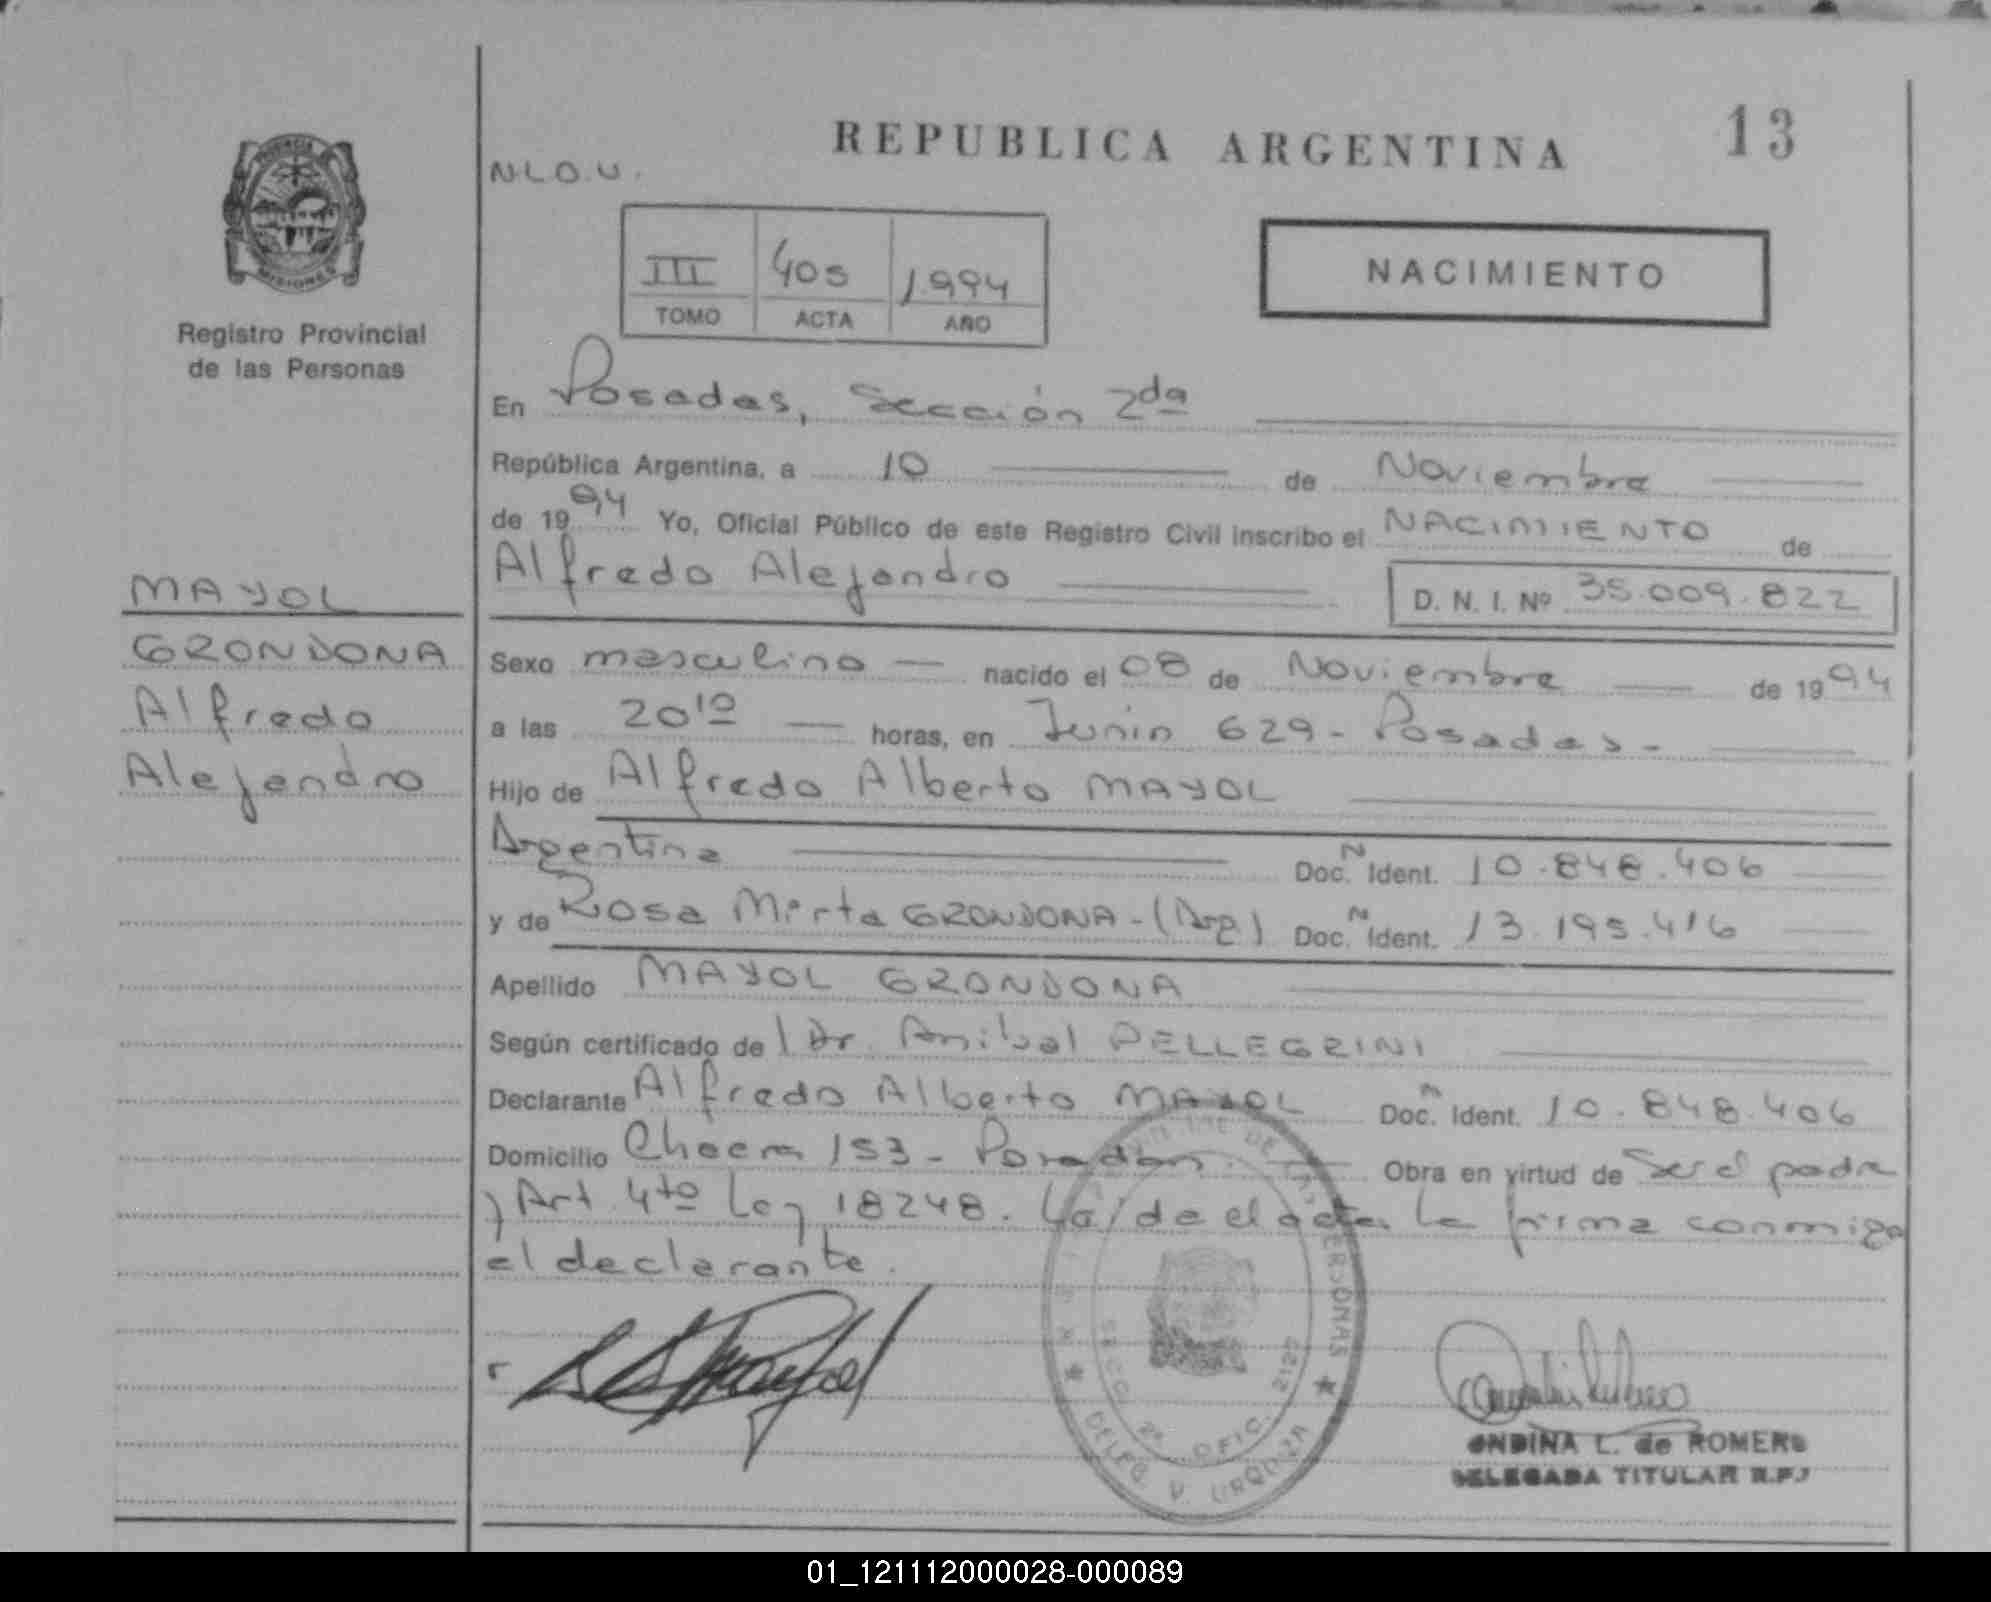 REPUBLICA ARGENTINA 13
N.L.O.U.
PROVINCIA
MISIONES
Registro Provincial
de las Personas
III 405 1.994
TOMO ACTA AÑO
NACIMIENTO
En Posadas, Sección 2da
República Argentina, a 10 de Noviembre
de 1994 Yo, Oficial Público de este Registro Civil inscribo el NACIMIENTO de
Alfredo Alejandro D. N. I. Nº 35.009.822
MAYOL
GRONDONA
Alfredo
Alejandro
Sexo masculino nacido el 08 de Noviembre de 1994
a las 20 10 horas, en Junin 629 - Posadas -
Hijo de Alfredo Alberto MAYOL
Argentina Doc. N Ident. 10.848.406
y de Rosa Mirta GRONDONA - (Arg) Doc. N Ident. 13.195.416
Apellido MAYOL GRONDONA
Según certificado de l Dr. Anibal PELLEGRINI
Declarante Alfredo Alberto MAYOL Doc. N Ident. 10.848.406
Domicilio 153 - Posadas Obra en virtud de Ser el padre
y Art. 4to Ley 18248. Leída el acta, la firma conmigo
el declarante.
PERSONAS
SECC. 2ª OFIC. 2127
DELEG. V. URQUIZA
ONDINA L. de ROMERO
DELEGADA TITULAR R.P.
01_121112000028-000089